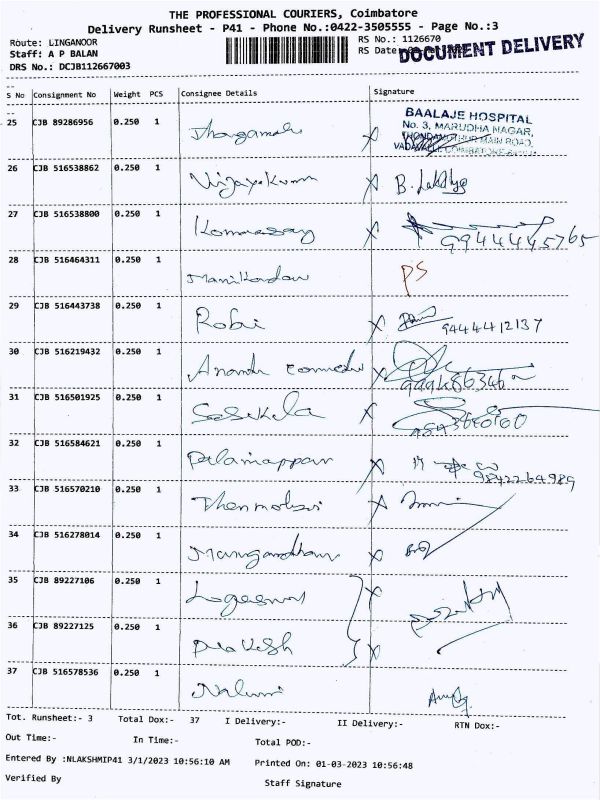 THE PROFESSIONAL COURIERS, Coimbatore
Delivery Runsheet - P41 - Phone No.:0422-3505555 - Page No.:3
Route: LINGANOOR
RS No.: 1126670
Staff: A P BALAN
RS Date
DOCUMENT DELIVERY
DRS No.: DCJB112667003
S No Consignment No Weight PCS Consignee Details Signature
25 CJB 89286956 0.250 1
BAALAJE HOSPITAL
No. 3, MARUDHA NAGAR,
MAIN ROAD,
26 CJB 516538862 0.250 1 Vijayakumar X B.
27 CJB 516538800 0.250 1 X 9944445765
28 CJB 516464311 0.250 1 Manikandan PS
29 CJB 516443738 0.250 1 Robi X 9444412137
30 CJB 516219432 0.250 1 Anandh X
31 CJB 516501925 0.250 1 Sasikala X
32 CJB 516584621 0.250 1 Palaniappan X 9842264989
33 CJB 516570210 0.250 1 Thenmolzi X
34 CJB 516278014 0.250 1 X
35 CJB 89227106 0.250 1 X
36 CJB 89227125 0.250 1 Prakash X
37 CJB 516578536 0.250 1 Nalini
Tot. Runsheet:- 3 Total Dox:- 37 I Delivery:- II Delivery:- RTN Dox:-
Out Time:- In Time:- Total POD:-
Entered By :NLAKSHMIP41 3/1/2023 10:56:10 AM Printed On: 01-03-2023 10:56:48
Verified By Staff Signature